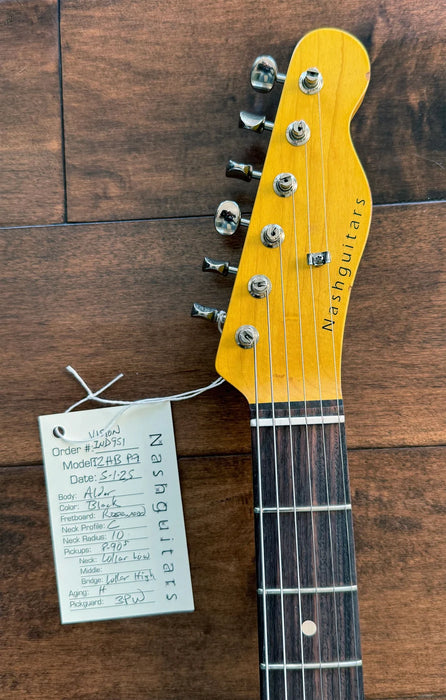 Nashguitars
Nashguitars
VISION
Order #: IND951
Model: T2HB P9
Date: 5-1-25
Body: Alder
Color: Black
Fretboard: Rosewood
Neck Profile: C
Neck Radius: 10
Pickups: P-90s
Neck: Lollar Low
Middle:
Bridge: Lollar High
Aging: H
Pickguard: 3PW